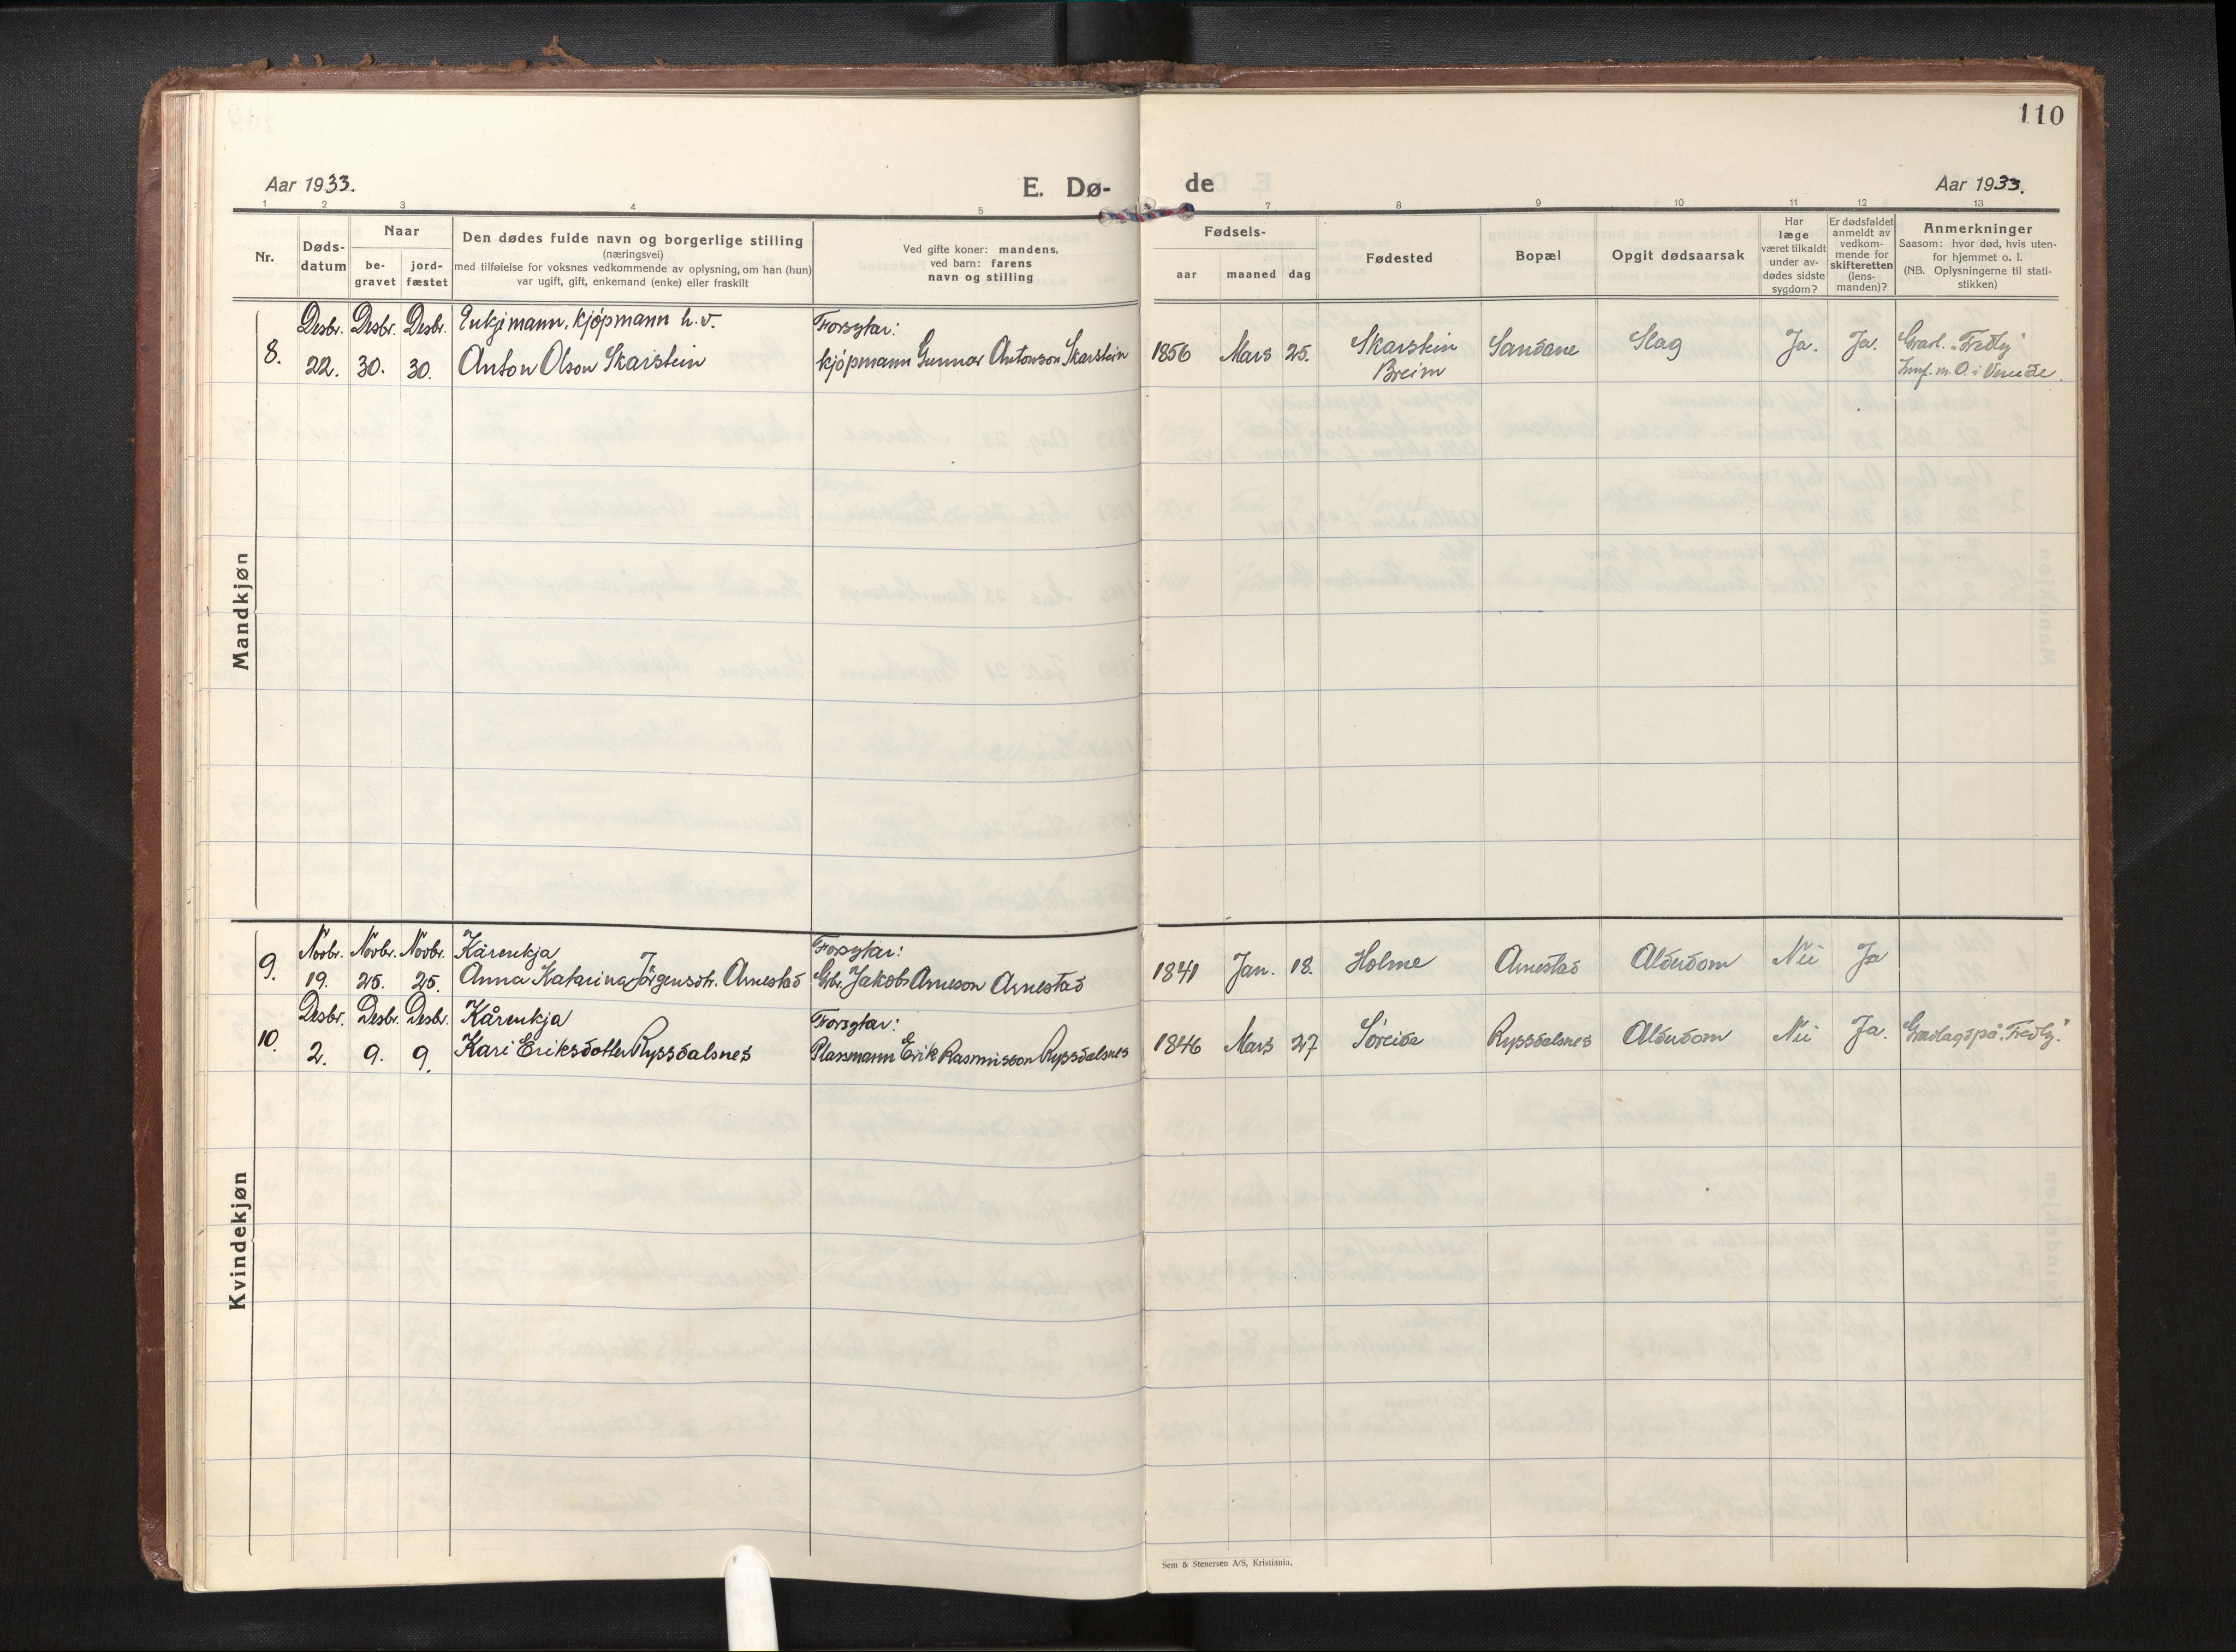 110
Aar 1933.
E. Dø-
de
Aar 1933.
1 2 3 4 5 7 8 9 10 11 12 13
Nr.
Døds-
datum
Naar
be-
gravet
jord-
fæstet
Den dødes fulde navn og borgerlige stilling
(næringsvei)
med tilføielse for voksnes vedkommende av oplysning, om han (hun)
var ugift, gift, enkemand (enke) eller fraskilt
Ved gifte koner: mandens.
ved barn: farens
navn og stilling
Fødsels-
aar maaned dag
Fødested
Bopæl
Opgit dødsaarsak
Har
læge
været tilkaldt
under av-
dødes sidste
sygdom?
Er dødsfaldet
anmeldt av
vedkom-
mende for
skifteretten
(lens-
manden)?
Anmerkninger
Saasom: hvor død, hvis uten-
for hjemmet o. l.
(NB. Oplysningerne til stati-
stikken)
Mandkjøn
Desbr. Desbr. Desbr. Enkjemann, kjöpmann h.v. Forsytar:
8. 22. 30. 30. Anton Olson Skarstein kjöpmann Gunnar Antonson Skarstein 1856 Mars 25. Skarstein Sandane Slag Ja. Ja. Gravl. "Fredly"
Breim
Novbr. Novbr. Novbr. Kårenkja Forsytar:
9. 19. 25. 25. Anna Katarina Jörgensdtr. Arnestad Gbr. Jakob Arneson Arnestad 1841 Jan. 18. Holme Arnestad Alderdom Nei Ja
Desbr. Desbr. Desbr. Kårenkja Forsytar:
10. 2. 9. 9. Kari Eriksdotter Ryssdalsnes Plassmann Erik Rasmusson Ryssdalsnes 1846 Mars 27 Söreide Ryssdalsnes Alderdom Nei Ja. Gravlagd på "Fredly".
Kvindekjøn
Sem & Stenersen A/S, Kristiania.